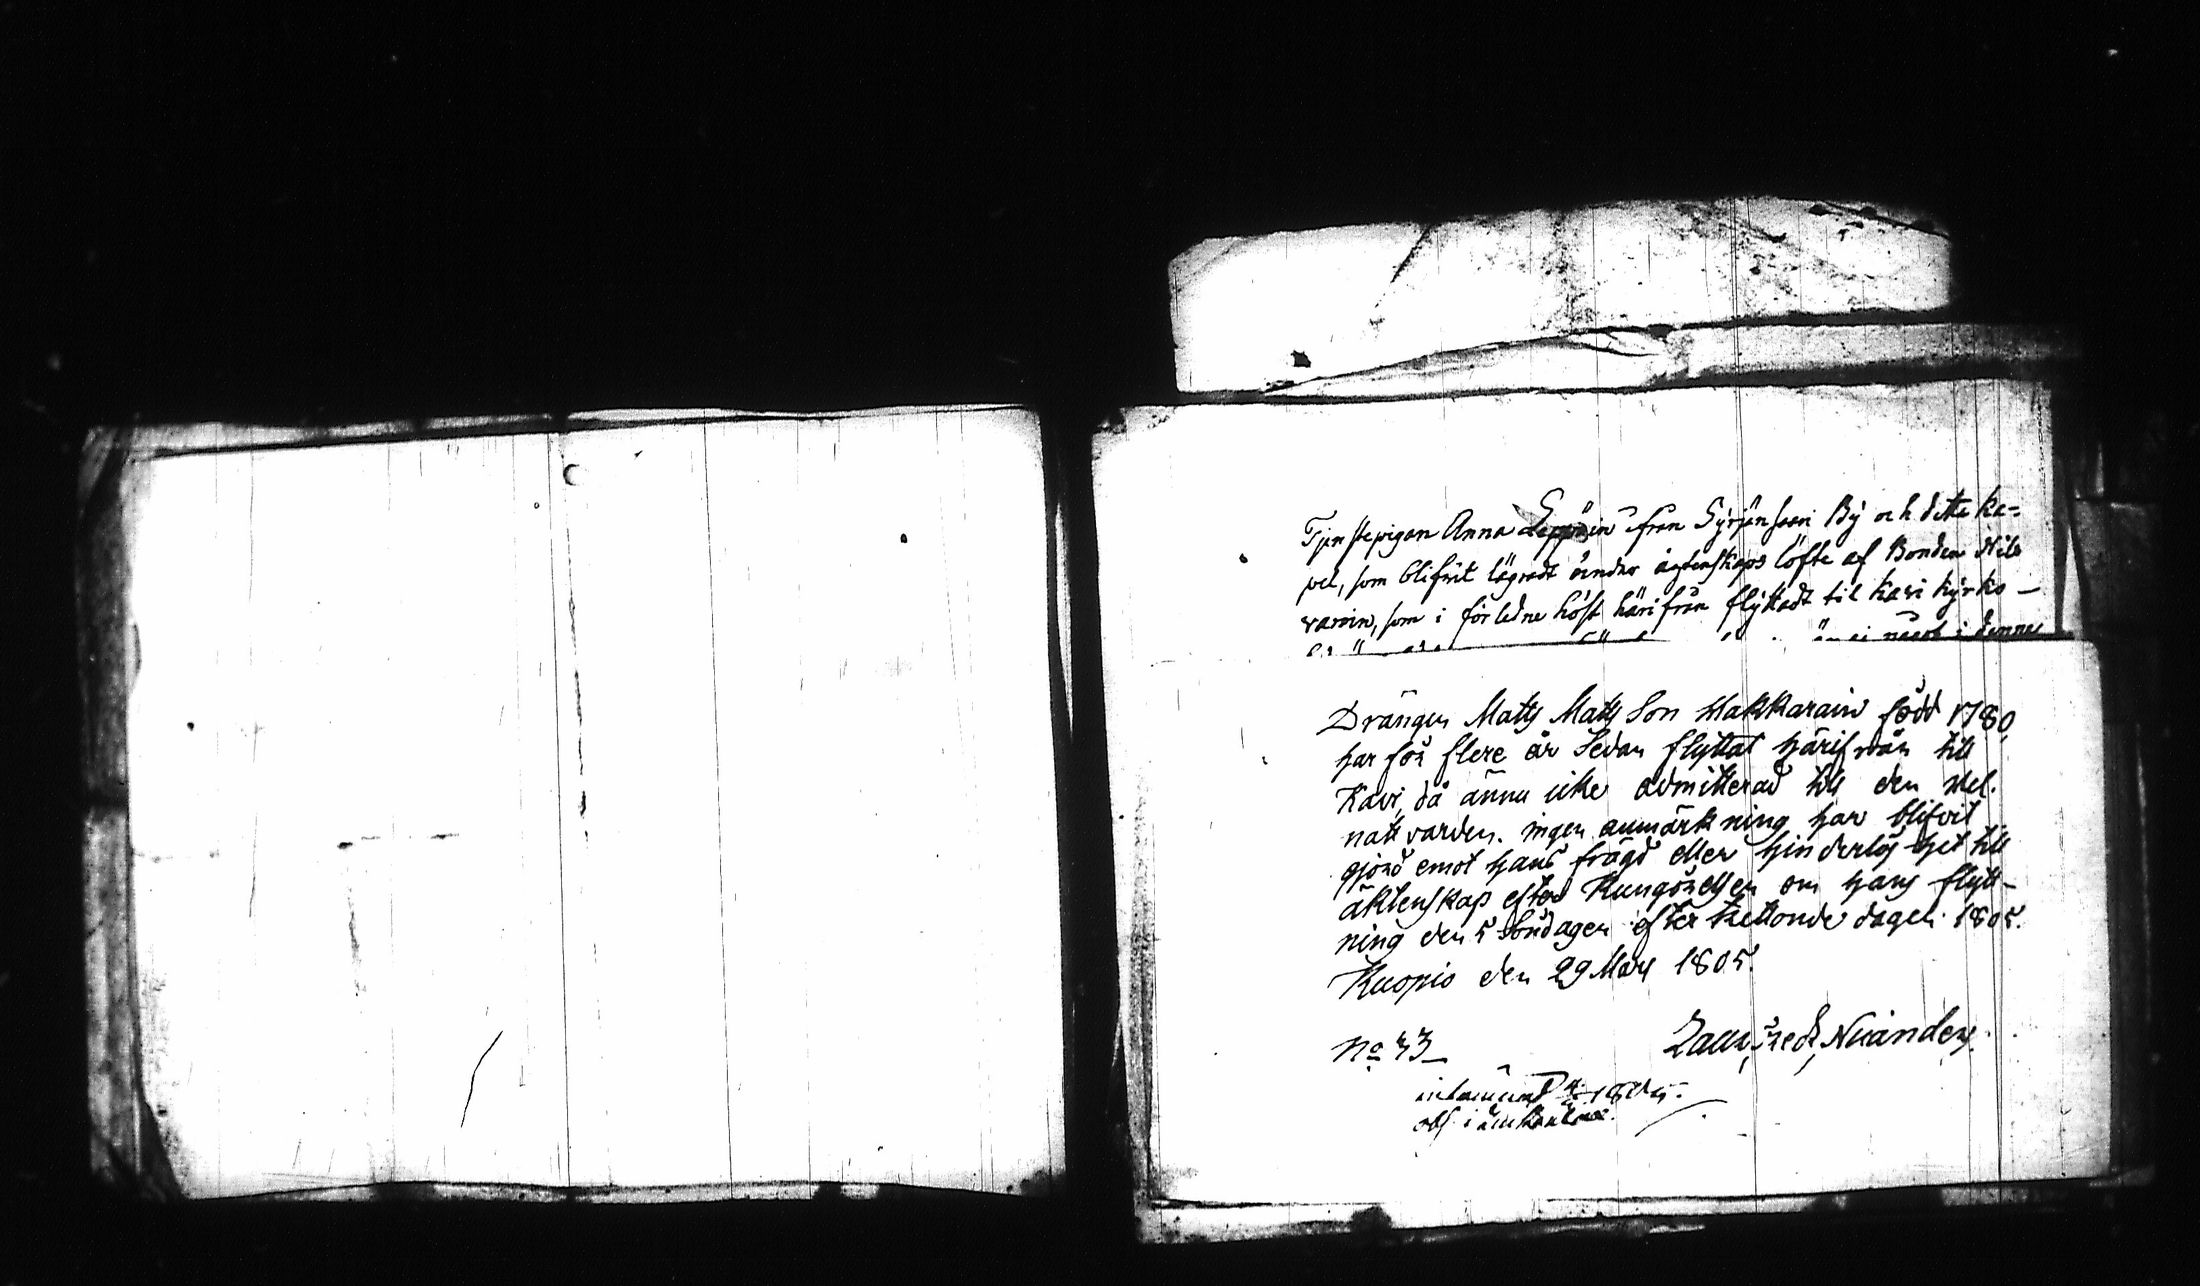 Tjenstepigan Anna Leppäin från Syrjänsaari By och detta ka=
pel, som blifvit lägradt under ägtenskaps löfte af Bonden Nils
varoin, som i förledne höst härifrån flyttadt til Kavi kyrko –
är ej något i dennes
Drängen Matts Matts Son Makkarain född 1780
har för flere år sedan flyttat härifrån till
Kavi, då ännu icke admitterad till den Hel.
nattvarden. ingen anmärkning har blifvit
gjord emot hans frägd eller hinderlöshet till
äktenskap efter Kungörelsen om hans flytt-
ning den 5 Söndagen efter trettonde dagen 1805.
Kuopio den 29 Mars 1805.
No 33 Nicander
1805.